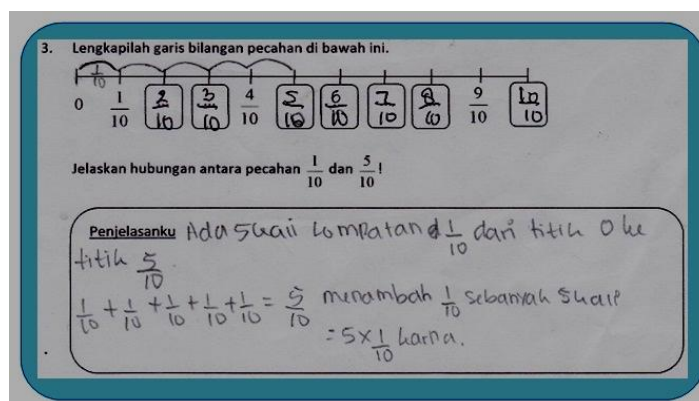 3. Lengkapilah garis bilangan pecahan di bawah ini.
1/10
0 1/10 2/10 3/10 4/10 5/10 6/10 7/10 8/10 9/10 10/10
Jelaskan hubungan antara pecahan 1/10 dan 5/10!
Penjelasanku Ada 5 kali lompatan 1/10 dari titik 0 ke
titik 5/10.
1/10 + 1/10 + 1/10 + 1/10 + 1/10 = 5/10 menambah 1/10 sebanyak 5 kali
= 5 × 1/10 karna.